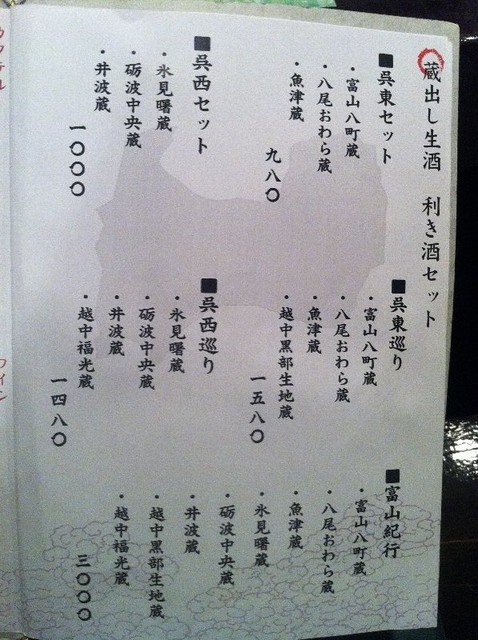 蔵出し生酒 利き酒セット
■呉東セット
・富山八町蔵
・八尾おわら蔵
・魚津蔵
九八〇
■呉西セット
・氷見曙蔵
・砺波中央蔵
・井波蔵
一〇〇〇
■呉東巡り
・富山八町蔵
・八尾おわら蔵
・魚津蔵
・越中黒部生地蔵
一五八〇
■呉西巡り
・氷見曙蔵
・砺波中央蔵
・井波蔵
・越中福光蔵
一四八〇
■富山紀行
・富山八町蔵
・八尾おわら蔵
・魚津蔵
・氷見曙蔵
・砺波中央蔵
・井波蔵
・越中黒部生地蔵
・越中福光蔵
三〇〇〇